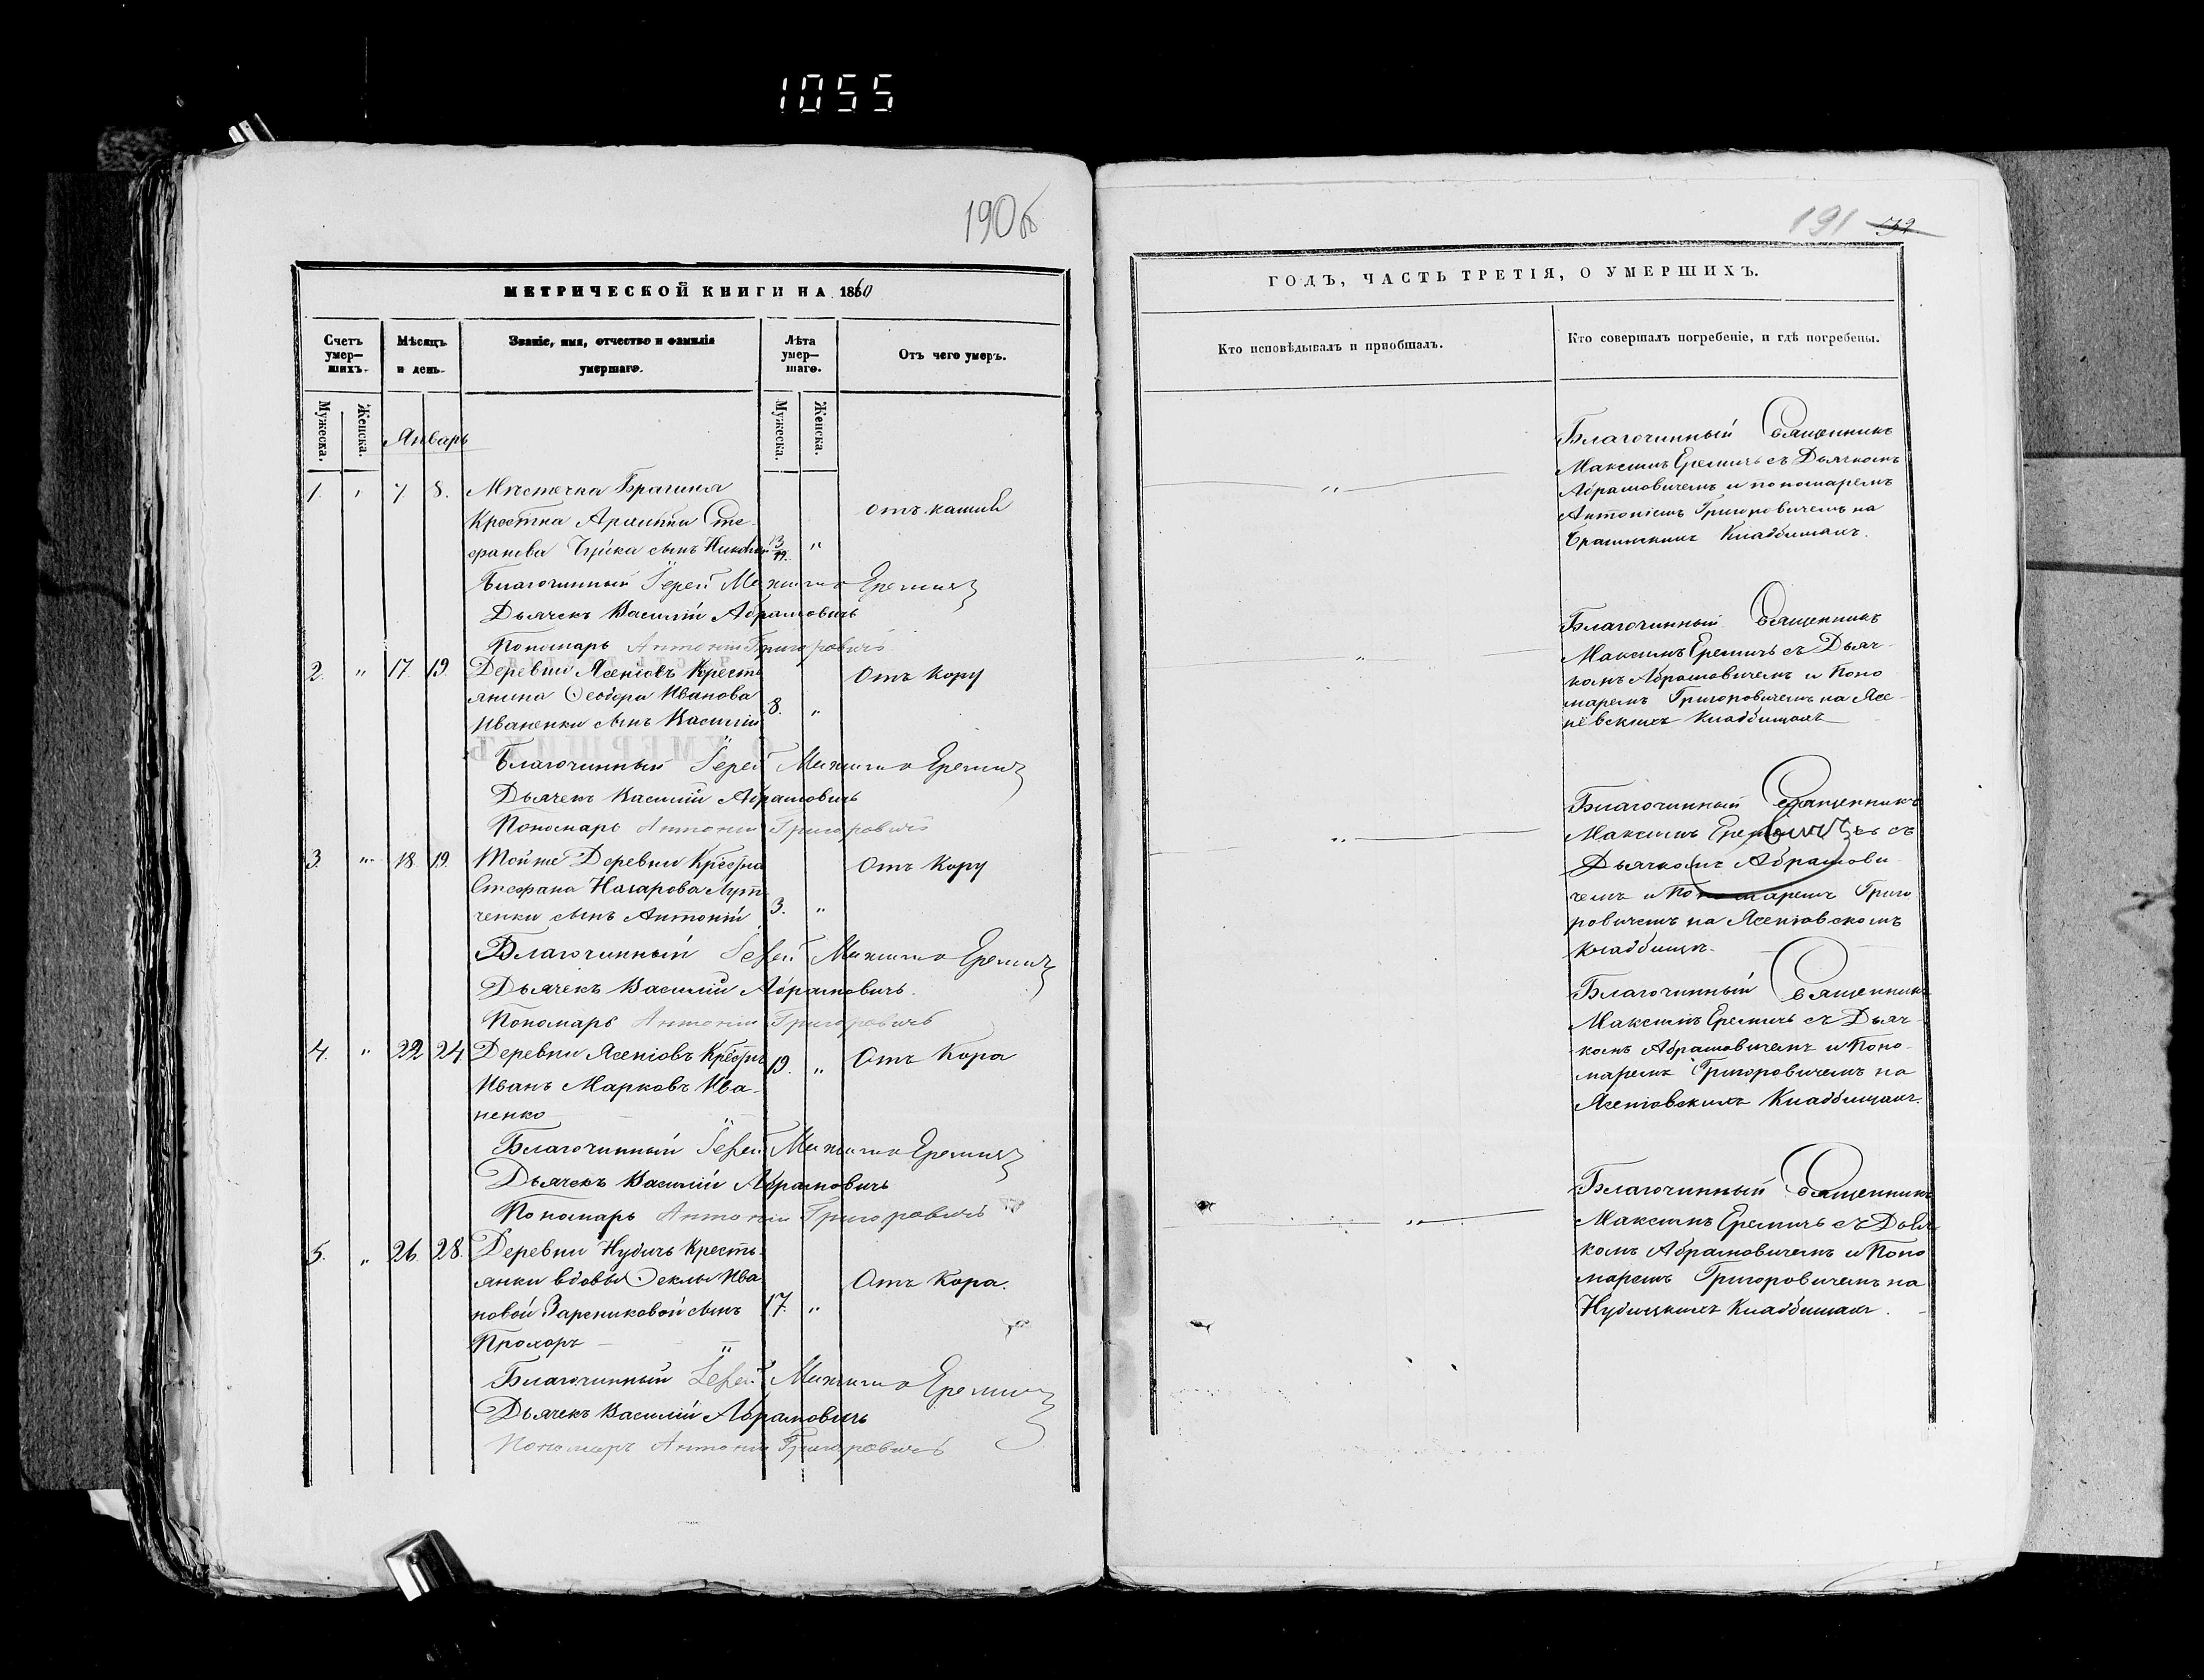 1055
190об
МЕТРИЧЕСКОЙ КНИГИ НА 1860
Счетъ умер-шихъ.
Мѣсяцъ и день.
Званіе, имя, отчество и фамилія умершаго.
Лѣта умер-шаго.
Отъ чего умеръ.
Мужеска. Женска.
Мужеска. Женска.
Январь
1. " 7 8. Мѣстечка Брагиня
Крестна Сте-
фанова сынъ "
отъ кашля
Благочинный Іерей Максимъ Еремичъ
Дьячекъ Василій Абрамовичь
Пономарь Антоній Григоровичъ
2. " 17. 19. Деревни Ясеніовъ Кресть
янина Ѳеодора Иванова
Иваненки сынъ Василій 8. "
Отъ Кору
Благочинный Іерей Максимъ Еремичъ
Дьячекъ Василій Абрамовичь
Пономарь Антоній Григоровичъ
3. " 18. 19. Тойже Деревни Крестна
Стефана Назарова
ченки сынъ Антоній 3. "
Отъ Кору
Благочинный Іерей Максимъ Еремичъ
Дьячекъ Василій Абрамовичь.
Пономарь Антоній Григоровичъ
4. " 22 24 Деревни Ясеніовъ Крестнъ 19. " Отъ Кора
Иванъ Марковъ Ива-
ненко
Благочинный Іерей Максимъ Еремичъ
Дьячекъ Василій Абрамовичь
Пономарь Антоній Григоровичъ
5. " 26 28. Деревни Нудичъ Кресть-
янки вдовы Ѳеклы Ива
новой Зарениковой сынъ 17. "
Прохоръ
Отъ Кора.
Благочинный Іерей Максимъ Еремичъ
Дьячекъ Василій Абрамовичь
Пономарь Антоній Григоровичъ
191
ГОДЪ, ЧАСТЬ ТРЕТІЯ, О УМЕРШИХЪ.
Кто исповѣдывалъ и пріобщалъ.
Кто совершалъ погребеніе, и гдѣ погребены.
"
Благочинный Священникъ
Максимъ Еремичь съ Дьячкомъ
Абрамовичемъ и пономаремъ
Антоніемъ Григоровичемъ на
Брагинскихъ Кладбищахъ.
"
Благочинный Священникъ
Максимъ Еремичь съ Дьяч-
комъ Абрамовичемъ и Поно
маремъ Григоровичемъ на Ясе
нёвскихъ Кладбищахъ
"
Благочинный Священникъ
Максимъ Еремичь съ
Дьячкомъ Абрамови
чемъ и Пономаремъ Григо
ровичемъ на Ясеніовскомъ
Кладбищѣ.
Благочинный Священникъ
Максимъ Еремичь съ Дьяч-
комъ Абрамовичемъ и Поно-
маремъ Григоровичемъ на
Ясеніовскихъ Кладбищахъ.
"
Благочинный Священникъ
Максимъ Еремичь съ Дьяч
комъ Абрамовичемъ и Поно
маремъ Григоровичемъ на
Нудицкихъ Кладбищахъ.